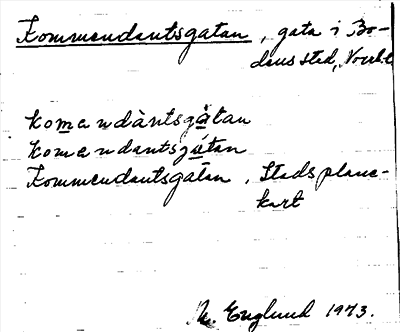 Kommendantsgatan, gata i Bo-
dens stad, Norrb.l
komendàntsgàtan
komendantsgátan
Kommendantsgatan, Stadsplane-
kart
M. Englund 1973.